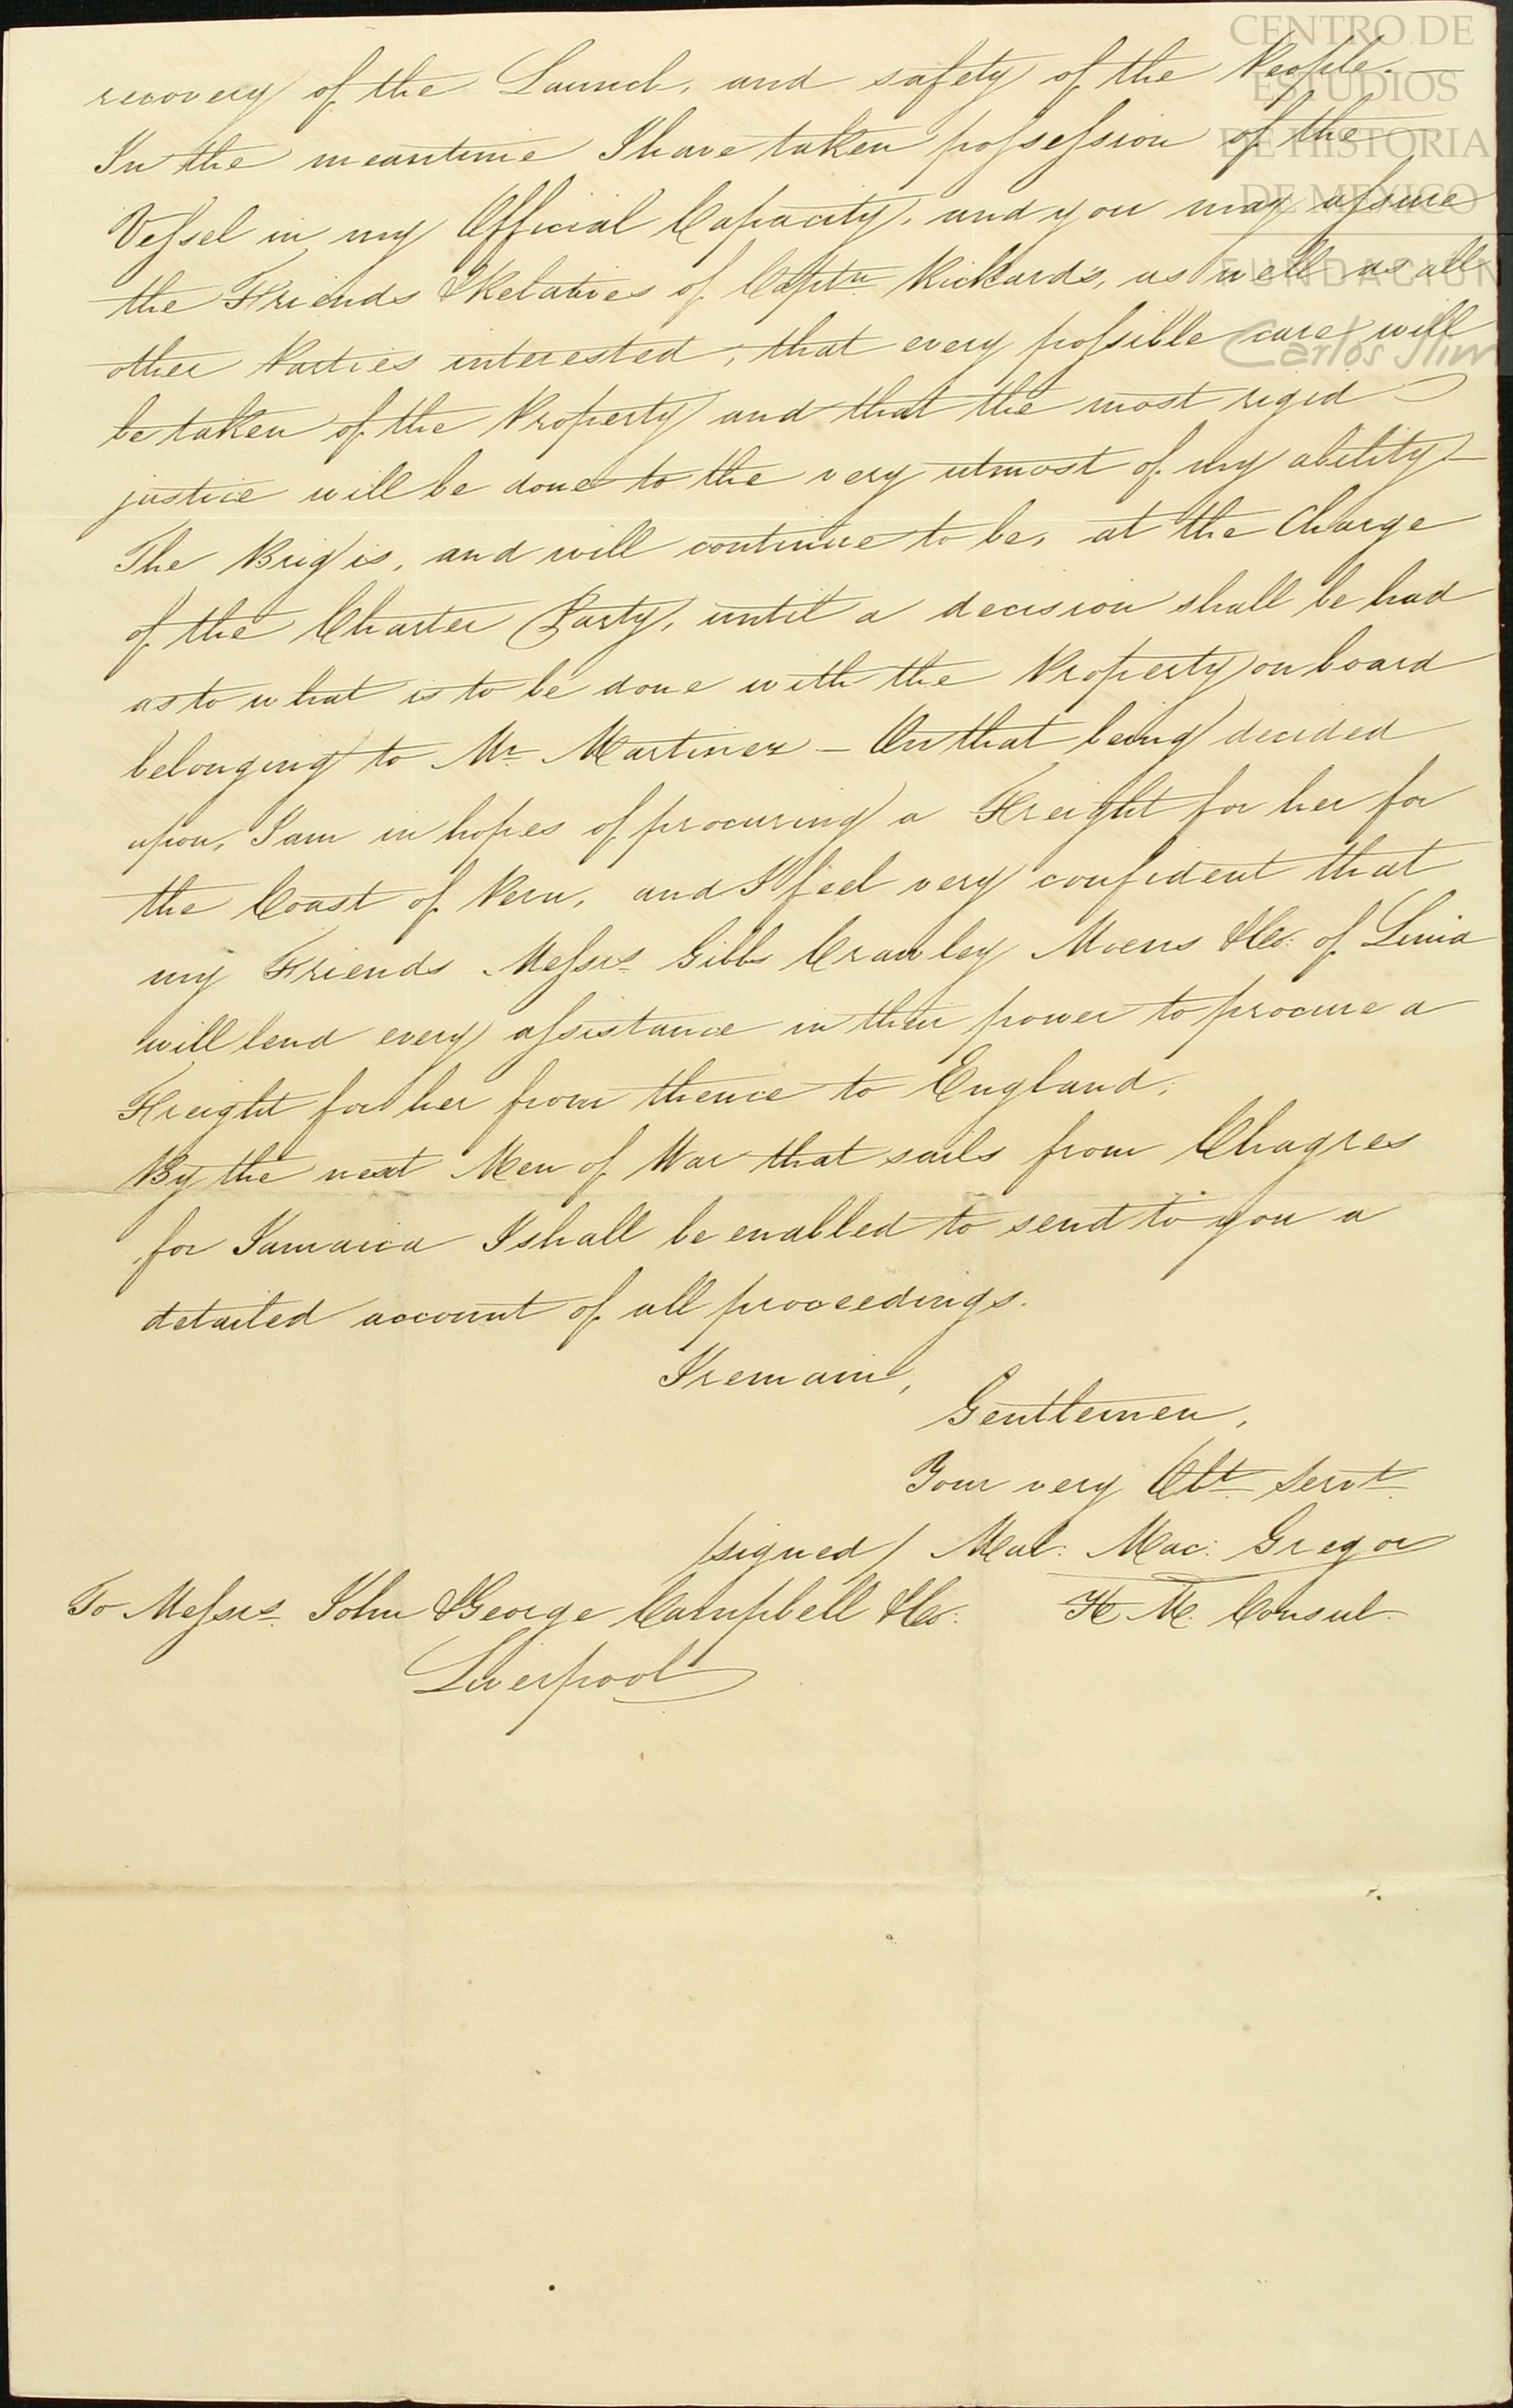 CENTRO DE
ESTUDIOS
DE HISTORIA
DE MEXICO
FUNDACIÓN
Carlos Slim
recovery of the Launch, and safety of the People.
In the meantime I have taken possession of the
Vessel in my Official Capacity, and you may assure
the Friends & Relatives of Captn Rickards, as well as all
other Parties interested, that every possible care will
be taken of the Property and that the most rigid
justice will be done to the very utmost of my ability
The Brig is, and will continue to be, at the Charge
of the Charter Party, until a decision shall be had
as to what is to be done with the Property on board
belonging to Mr Martinez – On that being decided
upon, I am in hopes of procuring a Freight for her for
the Coast of Peru, and I feel very confident that
my Friends Messrs Gibbs Crawley Moens & Co: of Lima
will lend every assistance in their power to procure a
Freight for her from thence to England.
By the next Men of War that sails from Chagres
for Jamaica I shall be enabled to send to you a
detailed account of all proceedings.
I remain,
Gentlemen,
Your very Obt Servt
/signed/ Mal: Mac: Gregor
H M. Consul.
To Messrs John & George Campbell & Co:
Liverpool